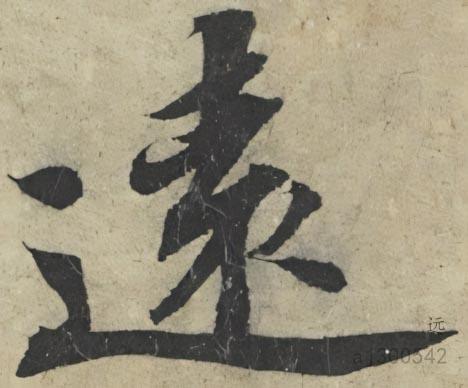 遠
远
a1300342